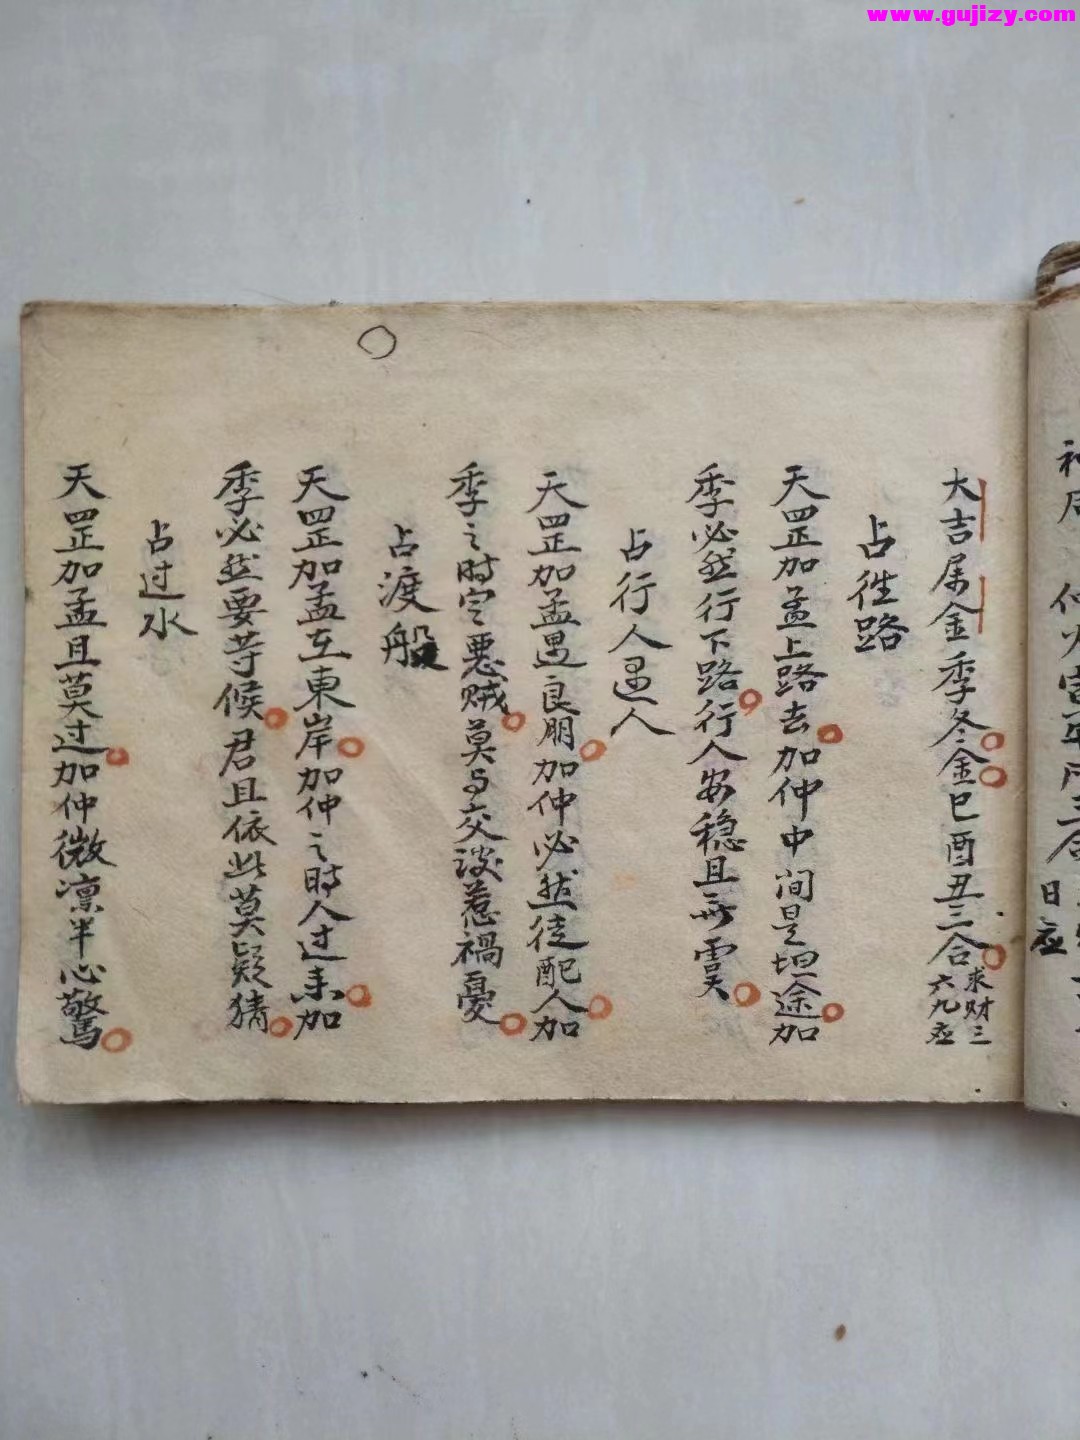 www.gujizy.com
日应
大吉属金季冬金巳酉丑三合
求财三
六九应
占徃路
天罡加孟上路去加仲中间是坦途加
季必然行下路行人安稳且無虞
占行人遇人
天罡加孟遇良朋加仲必然徒配人加
季之時定惡贼莫与交談惹禍憂
占渡船
天罡加孟在東岸加仲之時人过来加
季必然要等候君且依此莫疑猜
占过水
天罡加孟且莫过加仲微凛半心驚